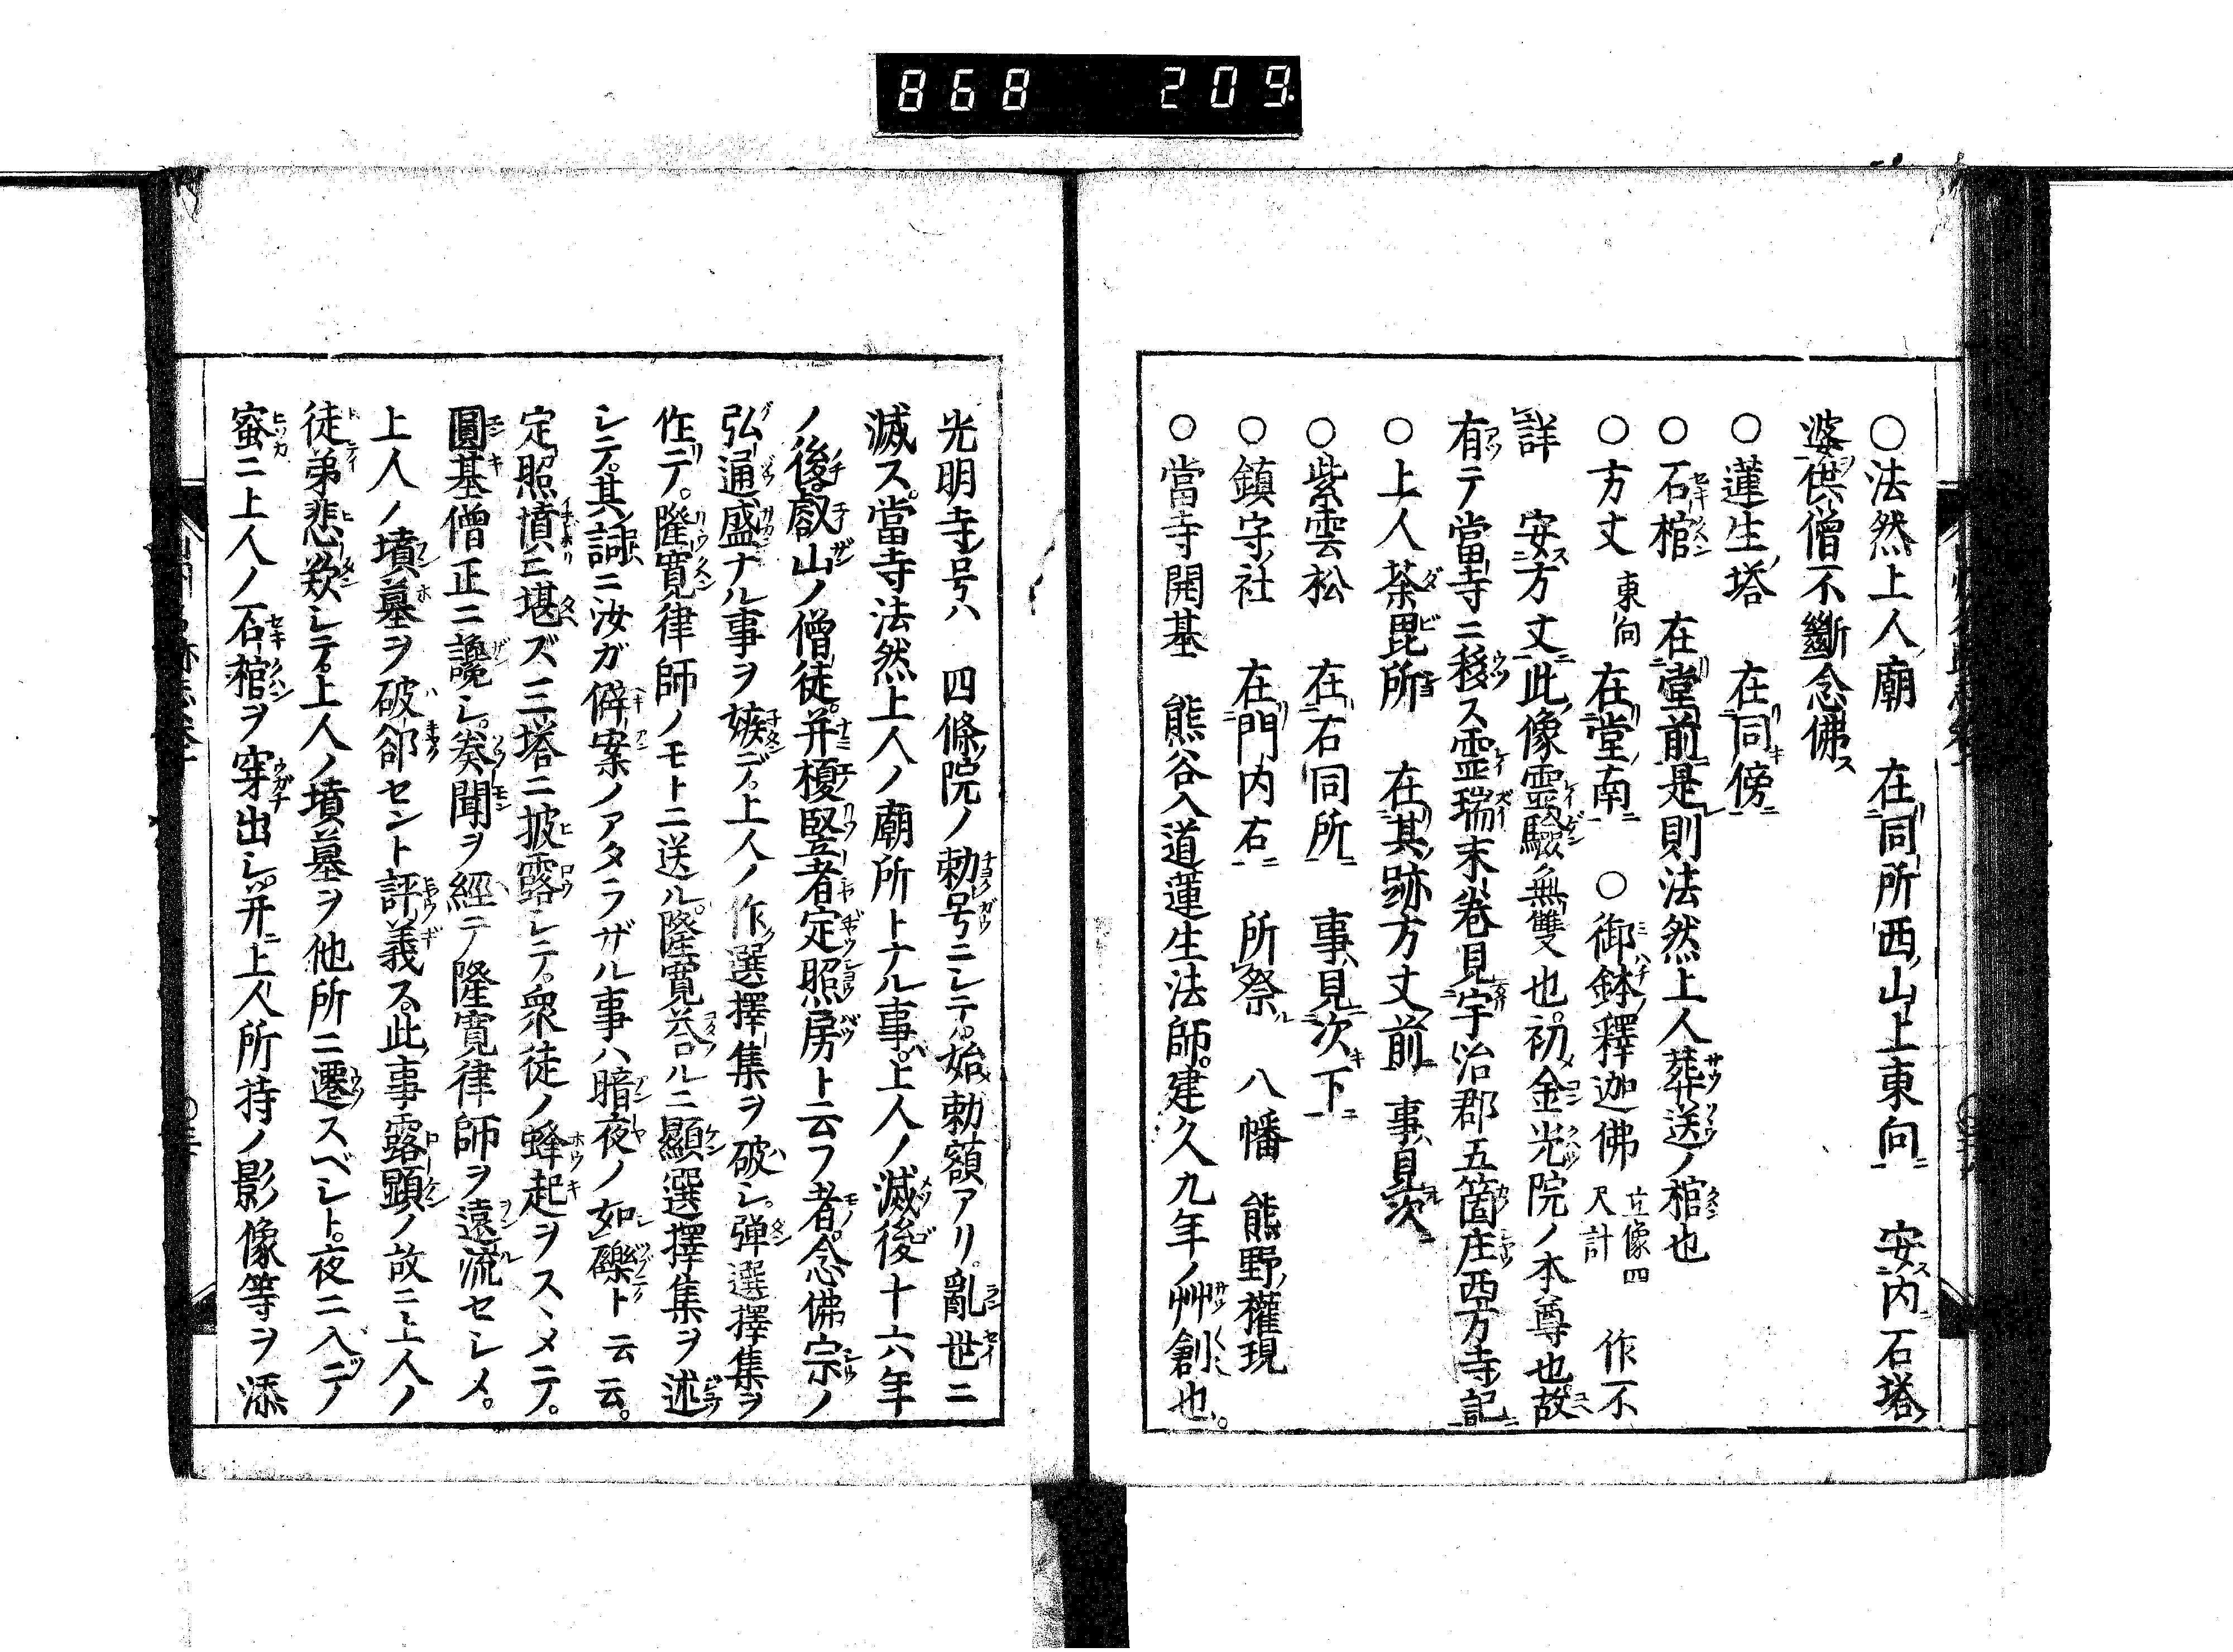 868 209
○法然上人廟 在同所西山上東向 安内石塔
婆供僧不斷念佛ス
○蓮生塔 在同傍
○石棺 在堂前是則法然上人葬送ノ棺也
○方丈 東向 在堂南 ○御鉢釋迦佛 立像四尺計 作不
詳 安方丈此像靈驗無雙也初金光院ノ本尊也故
有テ當寺ニ移ス霊瑞末巻見宇治郡五箇庄西方寺記
○上人茶毘所 在其跡方丈前 事見次
○紫雲松 在右同所 事見次下
○鎮守社 在門内右 所祭 八幡 熊野權現
○當寺開基 熊谷入道蓮生法師建久九年ノ艸創也。
光明寺号ハ 四條院ノ勅号ニシテ。始勅額アリ。亂世ニ
滅ス。當寺法然上人ノ廟所トナル事。上人ノ滅後十六年
ノ後。叡山ノ僧徒。并榎竪者定照房ト云フ者。念佛宗ノ
弘通盛ナル事ヲ嫉デ。上人ノ作選擇集ヲ破シ。弾選擇集ヲ
作テ。隆寛律師ノモトニ送ル。隆寛答ルニ顯選擇集ヲ述
シテ。其詞ニ汝ガ僻案ノアタラザル事ハ暗夜ノ如礫ト云云。
定照憤ニ堪ズ。三塔ニ披露シテ。衆徒ノ蜂起ヲスヽメテ。
圓基僧正ニ讒シ。奏聞ヲ經テ隆寛律師ヲ遠流セシメ。
上人ノ墳墓ヲ破郤セント評義ス。此事露顕ノ故ニ上人ノ
徒弟悲歎シテ。上人ノ墳墓ヲ他所ニ遷スベシト。夜ニ入テ
蜜ニ上人ノ石棺ヲ穿出シ。并上人所持ノ影像等ヲ添